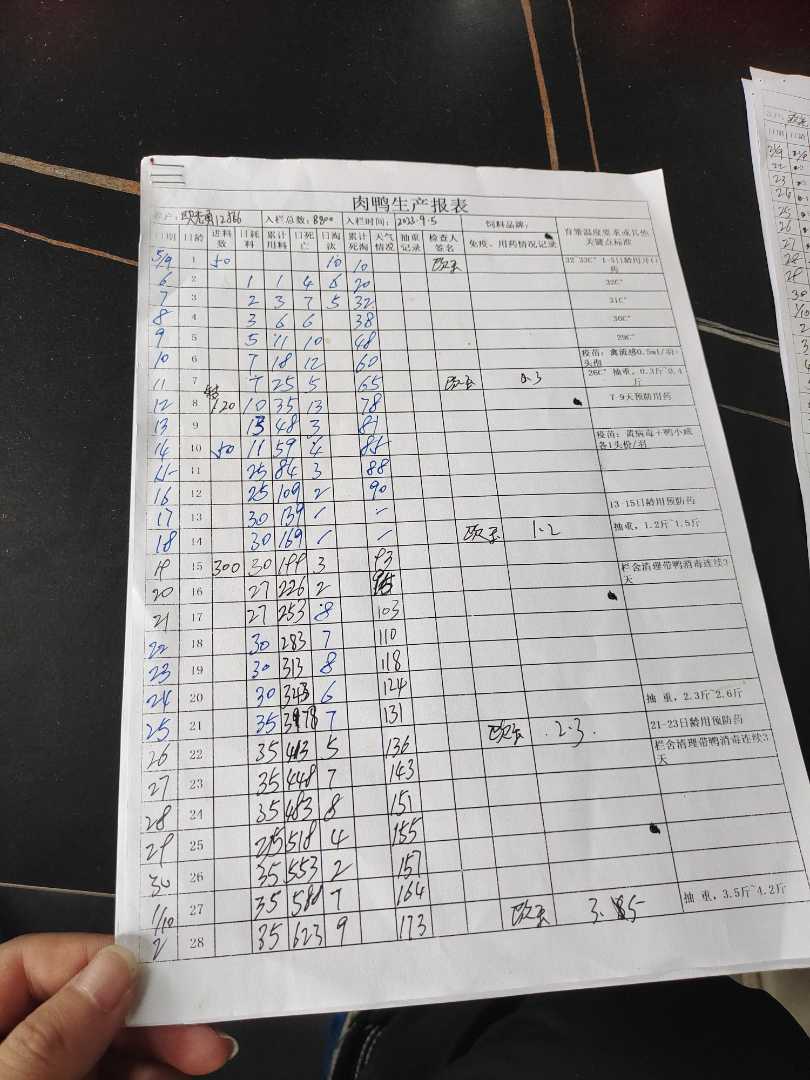 肉鸭生产报表
入栏总数: 8800 入栏时间: 2023.9.5 饲料品牌:
日期 日龄 进料数 日耗料 累计用料 日死亡 日淘汰 累计死淘 天气情况 抽重记录 检查人签名 免疫、用药情况记录 育雏温度要求或其他关键点标准
5/9 1 50 10 10 32~33C° 1-5日龄用开口药
6 2 1 1 4 6 20 32C°
7 3 2 3 7 5 32 31C°
8 4 3 6 6 38 30C°
9 5 5 11 10 48 29C°
10 6 7 18 12 60 疫苗: 禽流感0.5ml/羽: 头份
11 7 7 25 5 65 0.3 26C° 抽重, 0.3斤~0.4斤
12 8 120 10 35 13 78 7-9天预防用药
13 9 13 48 3 81
14 10 50 11 59 4 85 疫苗: 黄病毒+鸭小或各1头份/羽
15 11 25 84 3 88
16 12 25 109 2 90
17 13 30 139 / / 13-15日龄用预防药
18 14 30 169 / / 1.2 抽重, 1.2斤~1.5斤
19 15 300 30 199 3 93
20 16 27 226 2 95 栏舍清理带鸭消毒连续3天
21 17 27 253 8 103
22 18 30 283 7 110
23 19 30 313 8 118
24 20 30 343 6 124 抽 重, 2.3斤~2.6斤
25 21 35 378 7 131 2.3. 21-23日龄用预防药
26 22 35 413 5 136 栏舍清理带鸭消毒连续3天
27 23 35 448 7 143
28 24 35 483 8 151
29 25 35 518 4 155
30 26 35 553 2 157
1/10 27 35 588 7 164 抽 重, 3.5斤~4.2斤
2 28 35 623 9 173
日期 日龄